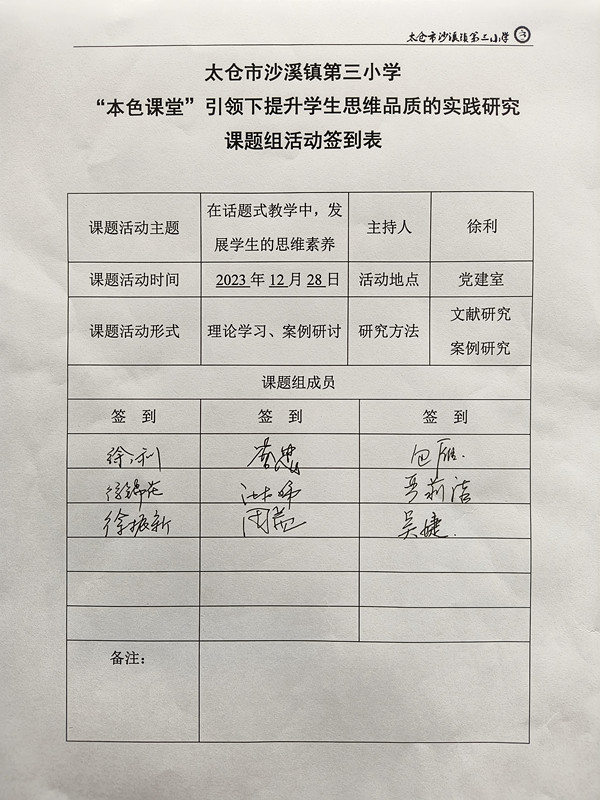 太仓市沙溪镇第三小学
太仓市沙溪镇第三小学
“本色课堂”引领下提升学生思维品质的实践研究
课题组活动签到表
课题活动主题
在话题式教学中，发
展学生的思维素养
主持人
徐利
课题活动时间
2023 年 12 月 28 日
活动地点
党建室
课题活动形式
理论学习、案例研讨
研究方法
文献研究
案例研究
课题组成员
签 到
签 到
签 到
徐利
包雁.
徐振新
吴婕.
备注：